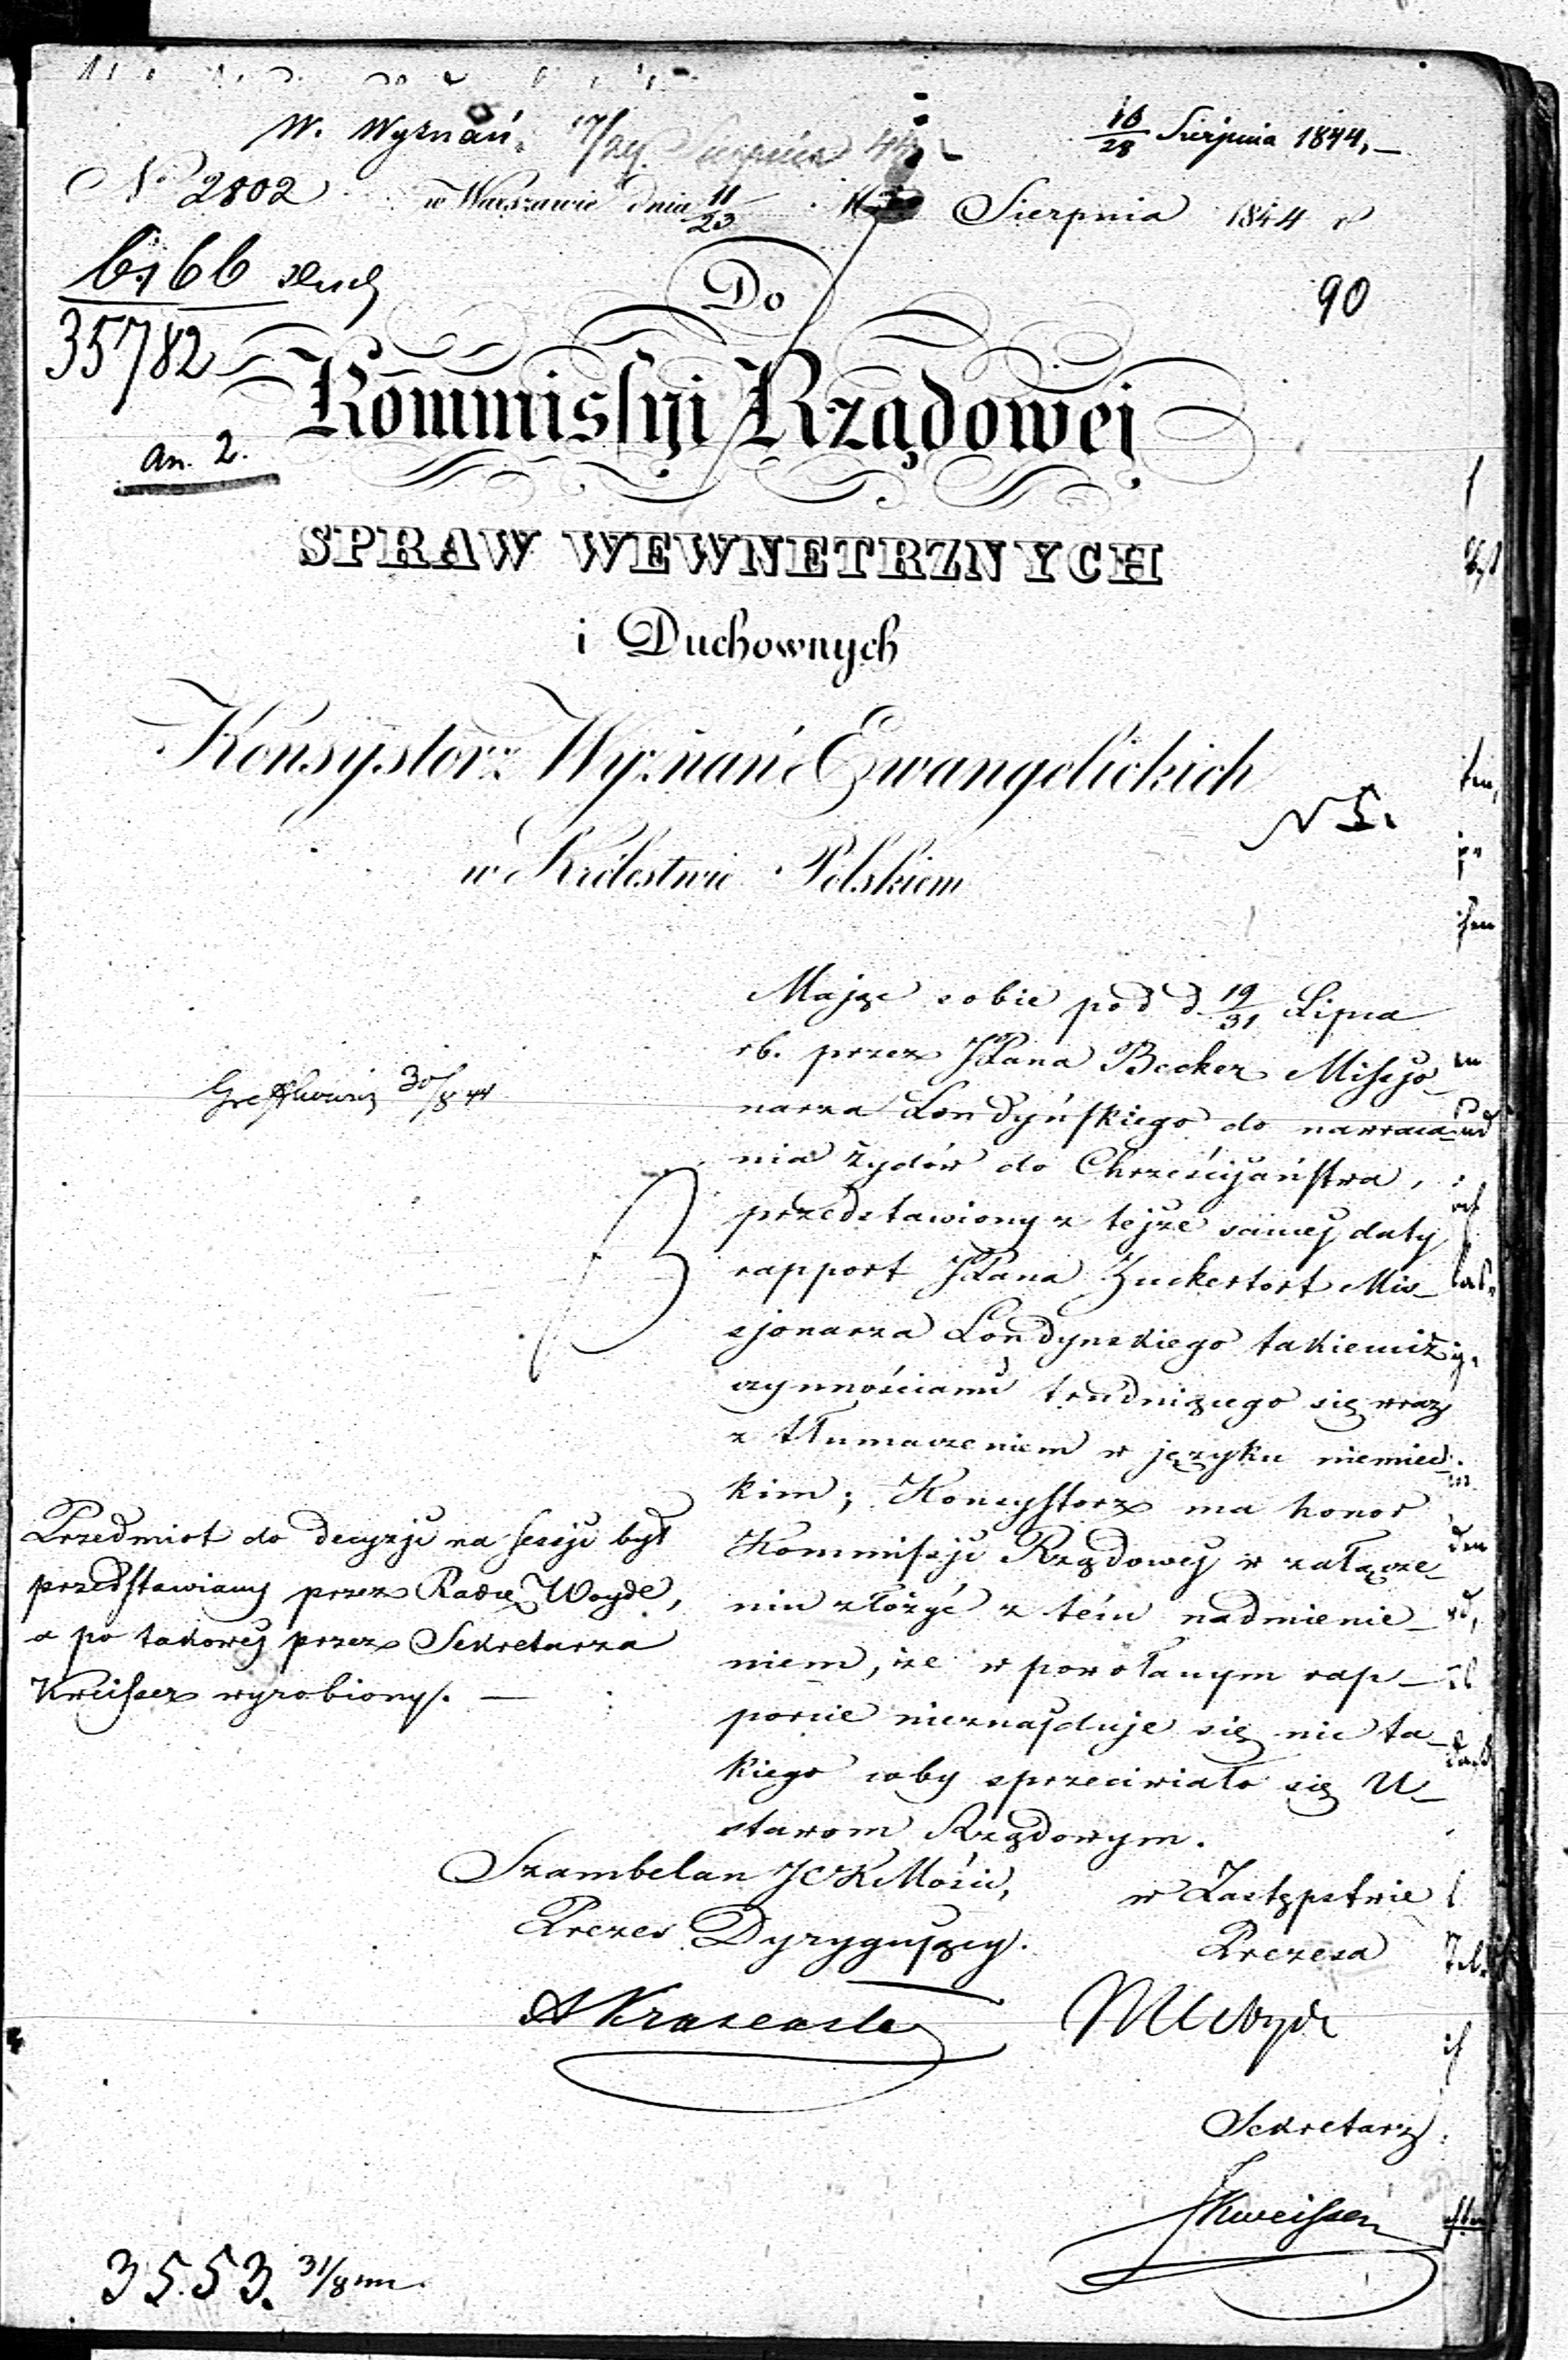 W. Wyznań.
16/28 Sierpnia 1844,—
No 2802
w Warszawie dnia 11/23 Sierpnia 1844 r
90
35782
an. 2.
Do
Kommissyi Rządowej
SPRAW WEWNETRZNYCH
i Duchownych
Konsystorz Wyznań Ewangelickich
w Królestwie Polskiem
Mając sobie pod d 19/31 Lipca
rb. przez JPana Becker Missjo-
narza Londyńskiego do nawraca-
nia żydów do Chrześcijaństwa,
przedstawiony z tejże samej daty
rapport JPana Zuckertort Mis-
sjonarza Londynskiego takiemiż
czynnościami trudniącego się wraz
z tłumaczeniem w języku niemiec-
kim; Konsystorz ma honor
Kommissji Rządowej w załącze-
niu złożyć z tém nadmienie-
niem, że w powołanym rap-
porcie nieznajduje się nic ta-
kiego coby sprzeciwiało się U-
stawom Rządowym.
30/8 44
Przedmiot do decyzji na sessji był
przedstawiany przez Radcę Woyde,
a po takowej przez Sekretarza
Kweisser wyrobiony. —
Szambelan JCKMości,
Prezes Dyrygujący.
w Zastępstwie
Prezesa
Sekretarz
Kweisser
3553. 31/8